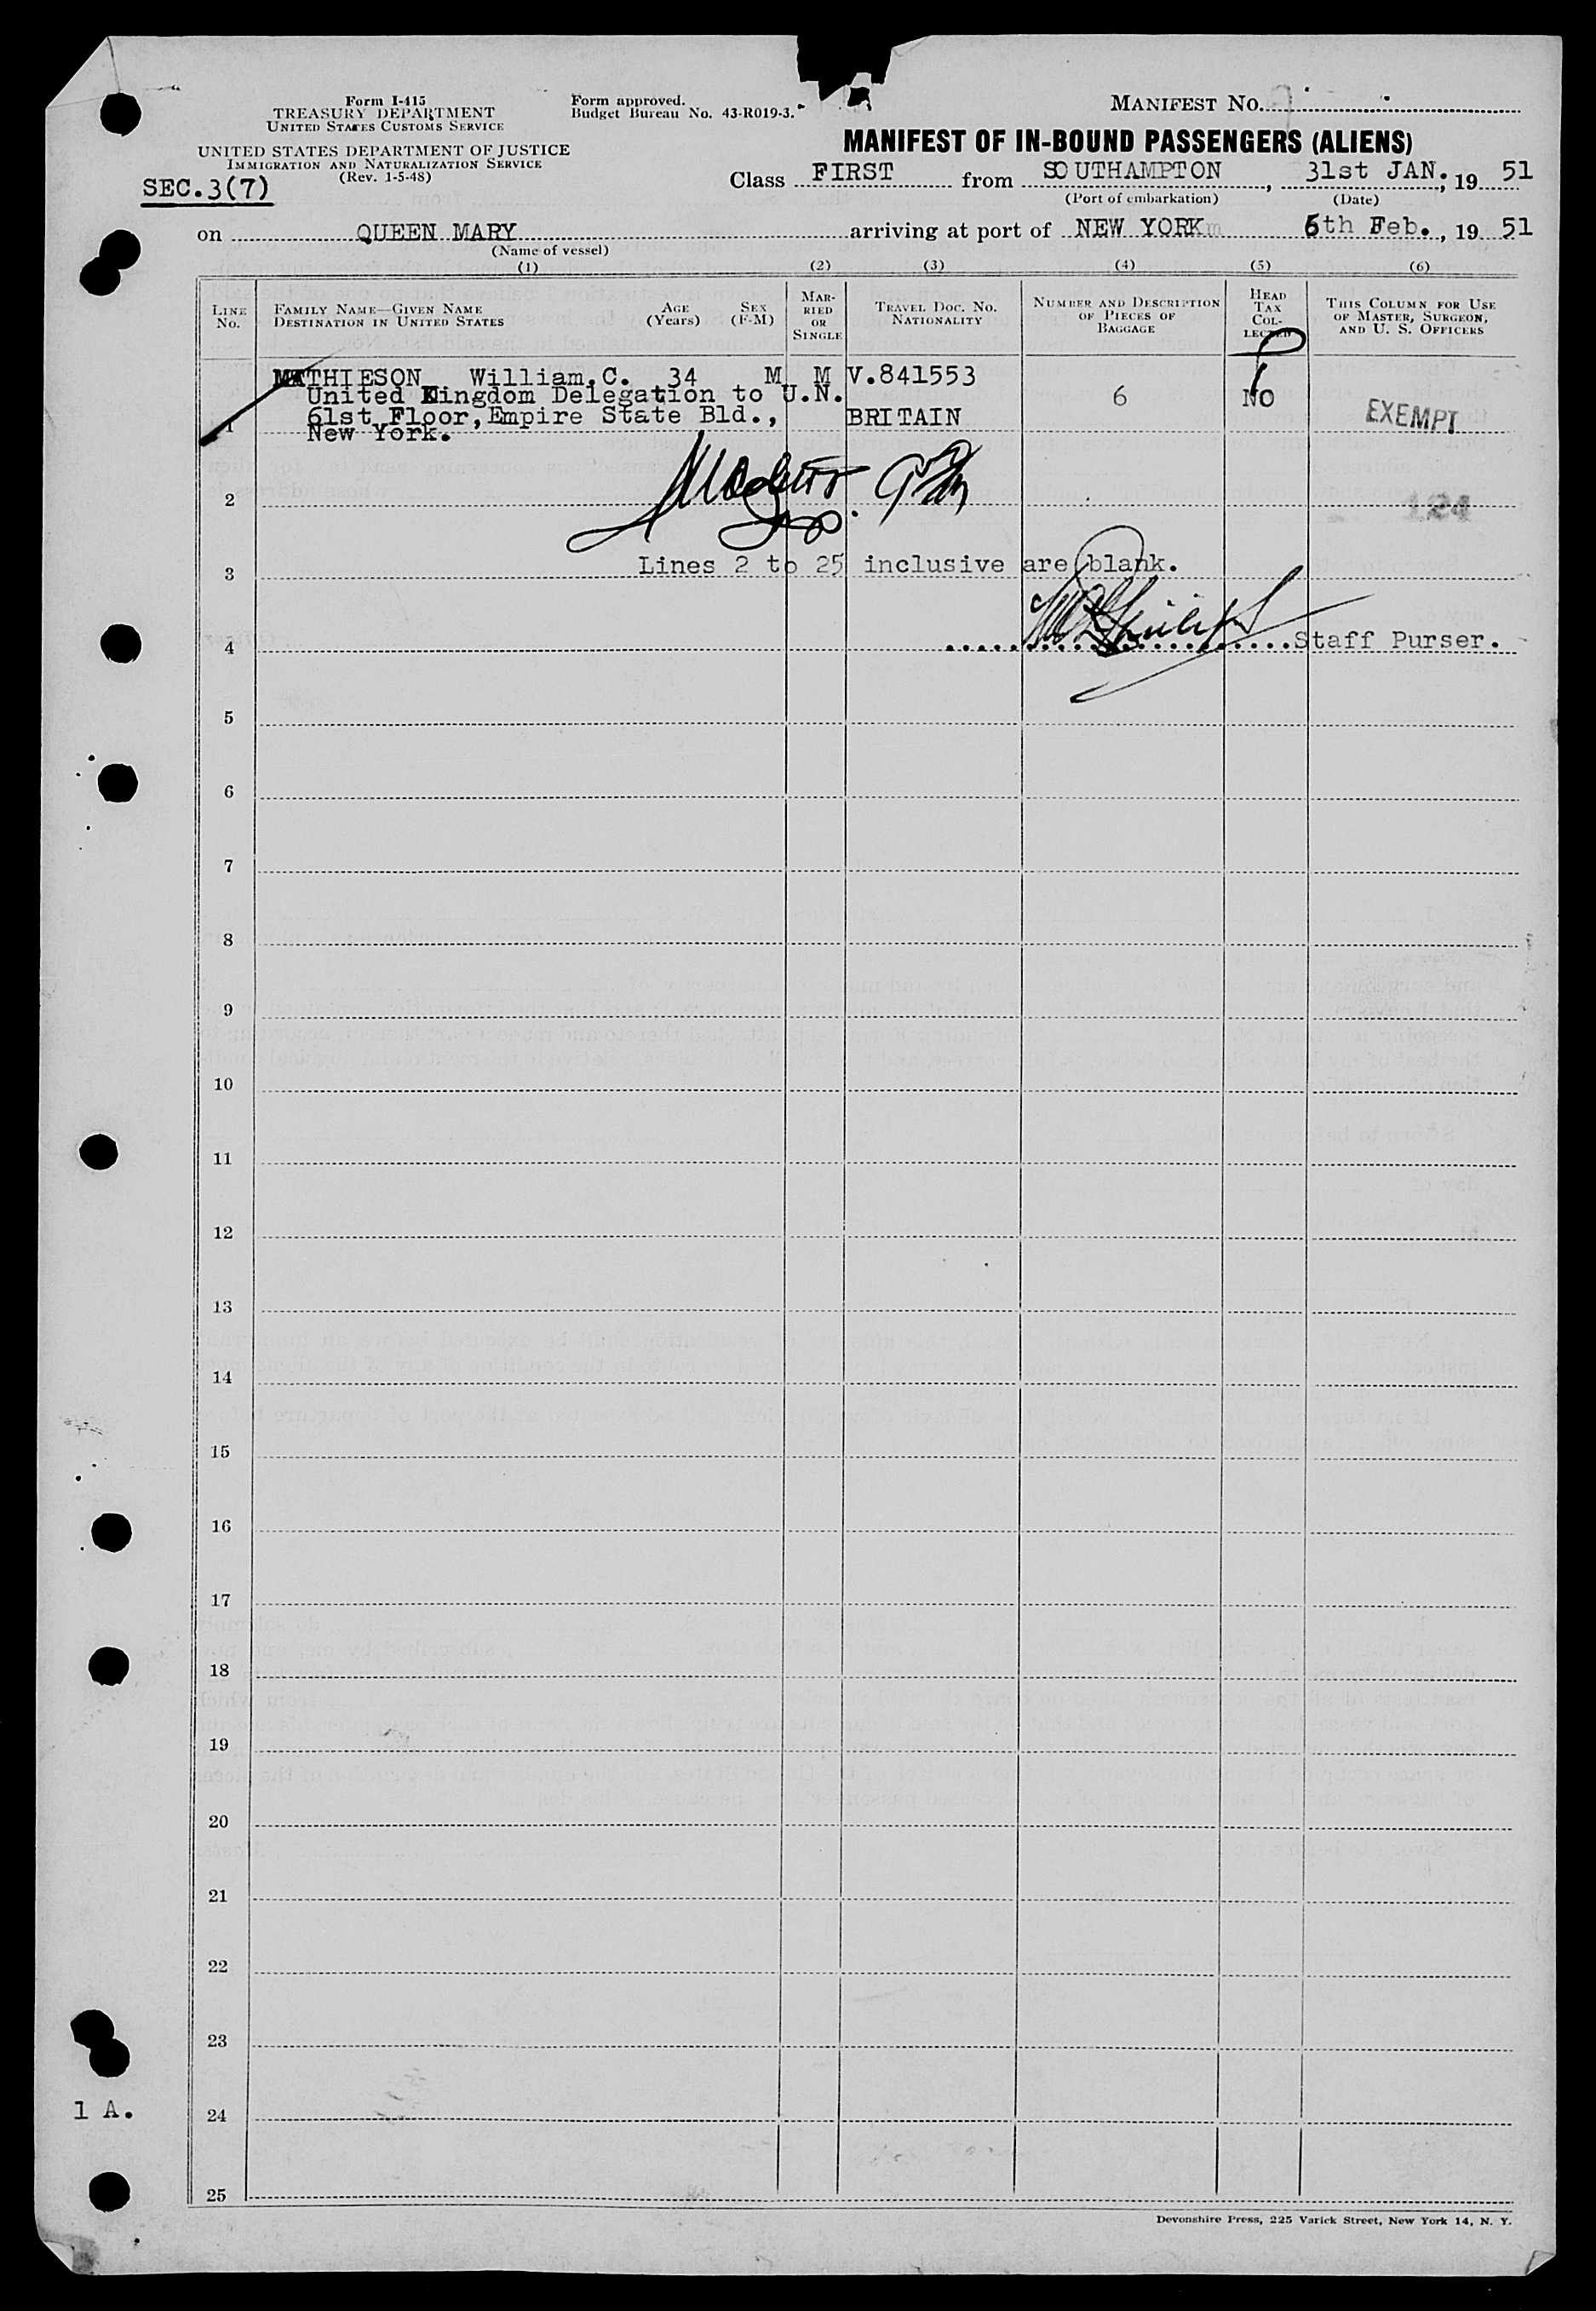 Form I-415
TREASURY DEPARTMENT
UNITED STATES CUSTOMS SERVICE
UNITED STATES DEPARTMENT OF JUSTICE
IMMIGRATION AND NATURALIZATION SERVICE
(Rev. 1-5-48)
Form approved.
Budget Bureau No. 43-R019-3.
MANIFEST NO.
MANIFEST OF IN-BOUND PASSENGERS (ALIENS)
SEC.3(7)
Class FIRST from SOUTHAMPTON, 31st JAN., 19 51
(Port of embarkation) (Date)
on QUEEN MARY arriving at port of NEW YORK 6th Feb., 19 51
(Name of vessel)
(1) (2) (3) (4) (5) (6)
LINE NO.
FAMILY NAME—GIVEN NAME
DESTINATION IN UNITED STATES
AGE (Years)
SEX (F-M)
MARRIED OR SINGLE
TRAVEL DOC. NO.
NATIONALITY
NUMBER AND DESCRIPTION
OF PIECES OF
BAGGAGE
HEAD
TAX
COL-
LECTED
THIS COLUMN FOR USE
OF MASTER, SURGEON,
AND U. S. OFFICERS
MATHIESON William.C. 34 M M V.841553
United Kingdom Delegation to U.N. 6 NO
1 61st Floor,Empire State Bld., BRITAIN EXEMPT
New York.
2 124
3 Lines 2 to 25 inclusive are blank.
4 Staff Purser.
5
6
7
8
9
10
11
12
13
14
15
16
17
18
19
20
21
22
23
1 A.
24
25
Devonshire Press, 225 Varick Street, New York 14, N. Y.